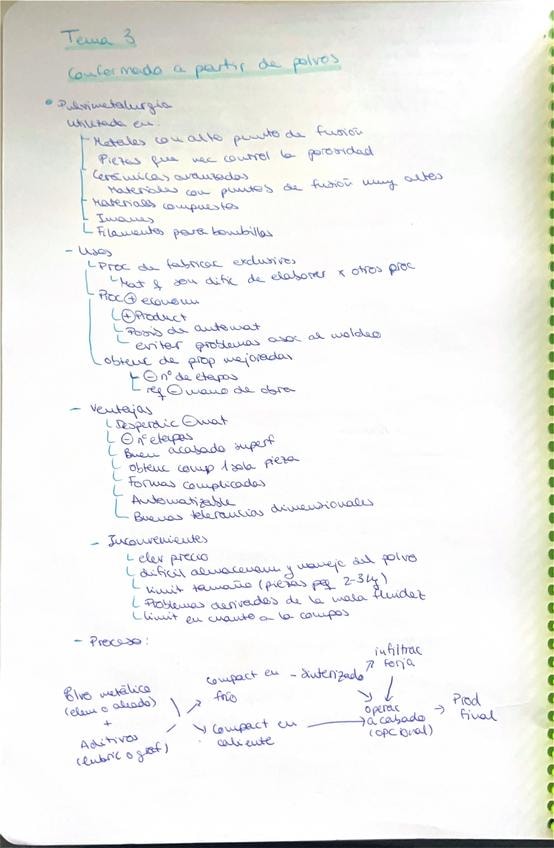 Tema 3
Conformado a partir de polvos
• Pulvimetalurgia
Utilizada en:
Metales con alto punto de fusión
Piezas que nec control la porosidad
Cerámicas avanzadas
Materiales con puntos de fusión muy altos
Materiales compuestos
Imanes
Filamentos para bombillas
- Usos
Proc de fabricac exclusivos
Mat q sean difíc de elaborar x otros proc
Proc ⊕ económ
⊕ Product
Posib de automat
evitar problemas asoc al moldeo
obtenc de prop mejoradas
⊖ nº de etapas
req ⊖ mano de obra
- Ventajas
Desperdic ⊖ mat
⊖ nº etapas
Buen acabado superf
obtenc comp 1 sola pieza
Formas complicadas
Automatizable
Buenas tolerancias dimensionales
- Inconvenientes
elev precio
difícil almacenam y manejo del polvo
limit tamaño (piezas peq 2-3 kg)
Problemas derivados de la mala fluidez
limit en cuanto a la compos
- Proceso:
Polvo metálico
(elem o aleado)
+
Aditivos
(lubric o graf)
compact en
frío
- sinterizado
infiltrac
forja
compact en
caliente
operac
acabado
(opcional)
Prod
final